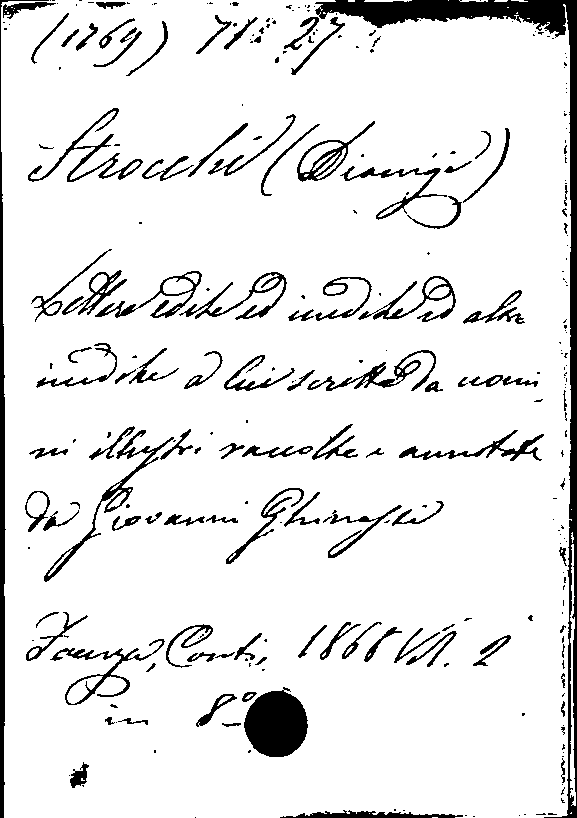 (1769) 71 27
Strocchi (Dionigi)
Lettere edite ed inedite ed altre
inedite a lui scritte da uomi-
ni illustri raccolte e annotate
da Giovanni Ghinassi
Faenza, Conti, 1868 Vol. 2
in 8º